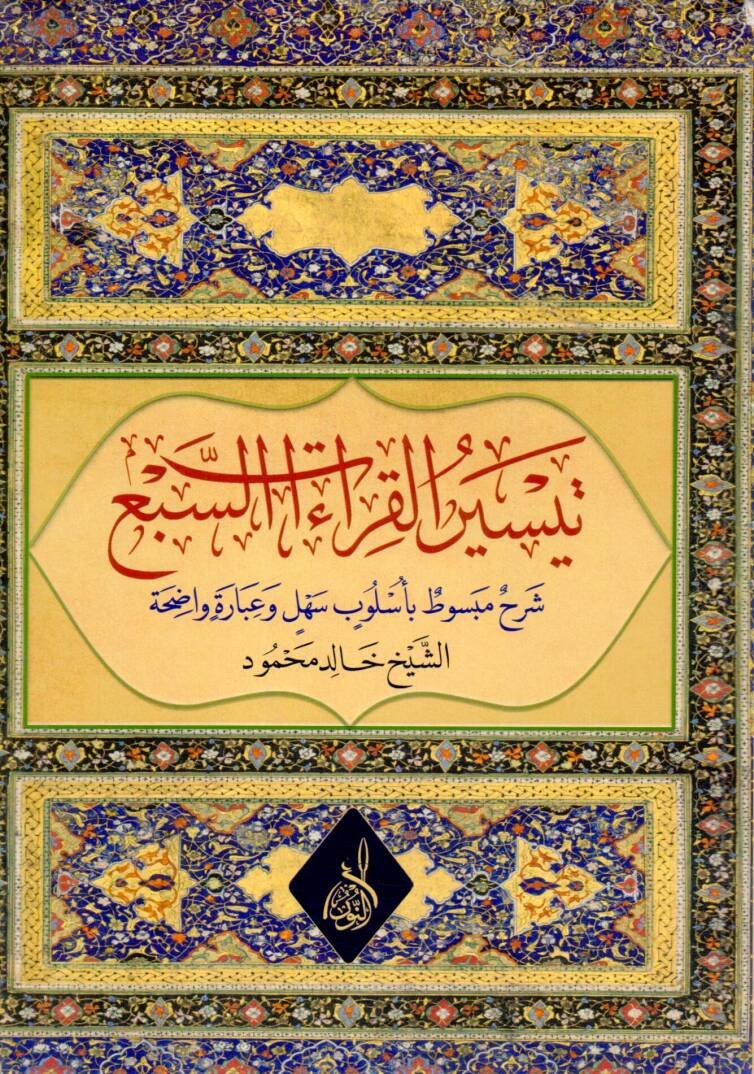 تَيْسِيرُ القِرَاءَاتِ السَّبْع
شَرْحٌ مَبسوطٌ بأُسْلُوبٍ سَهْلٍ وَعِبَارَةٍ واضِحَة
الشَّيْخ خَالِد مَحْمُود
النُّور